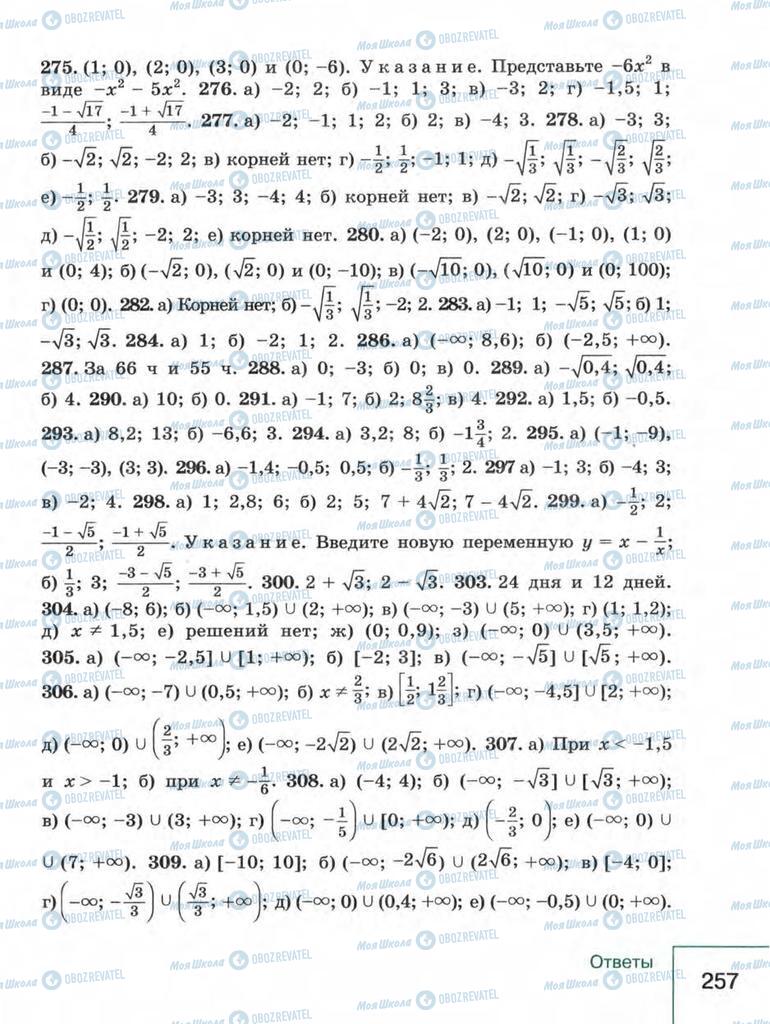 275. (1; 0), (2; 0), (3; 0) и (0; −6). Указание. Представьте −6x² в
виде −x² − 5x². 276. а) −2; 2; б) −1; 1; 3; в) −3; 2; г) −1,5; 1;
(−1 − √17)/4; (−1 + √17)/4. 277. а) −2; −1; 1; 2; б) 2; в) −4; 3. 278. а) −3; 3;
б) −√2; √2; −2; 2; в) корней нет; г) −1/2; 1/2; −1; 1; д) −√(1/3); √(1/3); −√(2/3); √(2/3);
е) −1/2; 1/2. 279. а) −3; 3; −4; 4; б) корней нет; в) −√2; √2; г) −√3; √3;
д) −√(1/2); √(1/2); −2; 2; е) корней нет. 280. а) (−2; 0), (2; 0), (−1; 0), (1; 0)
и (0; 4); б) (−√2; 0), (√2; 0) и (0; −10); в) (−√10; 0), (√10; 0) и (0; 100);
г) (0; 0). 282. а) Корней нет; б) −√(1/3); √(1/3); −2; 2. 283. а) −1; 1; −√5; √5; б) 1;
−√3; √3. 284. а) 1; б) −2; 1; 2. 286. а) (−∞; 8,6); б) (−2,5; +∞).
287. За 66 ч и 55 ч. 288. а) 0; −3; б) 0; в) 0. 289. а) −√0,4; √0,4;
б) 4. 290. а) 10; б) 0. 291. а) −1; 7; б) 2; 8 2/3; в) 4. 292. а) 1,5; б) −0,5.
293. а) 8,2; 13; б) −6,6; 3. 294. а) 3,2; 8; б) −1 3/4; 2. 295. а) (−1; −9),
(−3; −3), (3; 3). 296. а) −1,4; −0,5; 0,5; б) −1/3; 1/3; 2. 297 а) −1; 3; б) −4; 3;
в) −2; 4. 298. а) 1; 2,8; 6; б) 2; 5; 7 + 4√2; 7 − 4√2. 299. а) −1/2; 2;
(−1 − √5)/2; (−1 + √5)/2. Указание. Введите новую переменную y = x − 1/x;
б) 1/3; 3; (−3 − √5)/2; (−3 + √5)/2. 300. 2 + √3; 2 − √3. 303. 24 дня и 12 дней.
304. а) (−8; 6); б) (−∞; 1,5) ∪ (2; +∞); в) (−∞; −3) ∪ (5; +∞); г) (1; 1,2);
д) x ≠ 1,5; е) решений нет; ж) (0; 0,9); з) (−∞; 0) ∪ (3,5; +∞).
305. а) (−∞; −2,5] ∪ [1; +∞); б) [−2; 3]; в) (−∞; −√5] ∪ [√5; +∞).
306. а) (−∞; −7) ∪ (0,5; +∞); б) x ≠ 2/3; в) [1/2; 1 2/3]; г) (−∞; −4,5] ∪ [2; +∞);
д) (−∞; 0) ∪ (2/3; +∞); е) (−∞; −2√2) ∪ (2√2; +∞). 307. а) При x < −1,5
и x > −1; б) при x ≠ −1/6. 308. а) (−4; 4); б) (−∞; −√3] ∪ [√3; +∞);
в) (−∞; −3) ∪ (3; +∞); г) (−∞; −1/5) ∪ [0; +∞); д) (−2/3; 0); е) (−∞; 0) ∪
∪ (7; +∞). 309. а) [−10; 10]; б) (−∞; −2√6) ∪ (2√6; +∞); в) [−4; 0];
г) (−∞; −√3/3) ∪ (√3/3; +∞); д) (−∞; 0) ∪ (0,4; +∞); е) (−∞; −0,5) ∪ (0; +∞).
Ответы
257